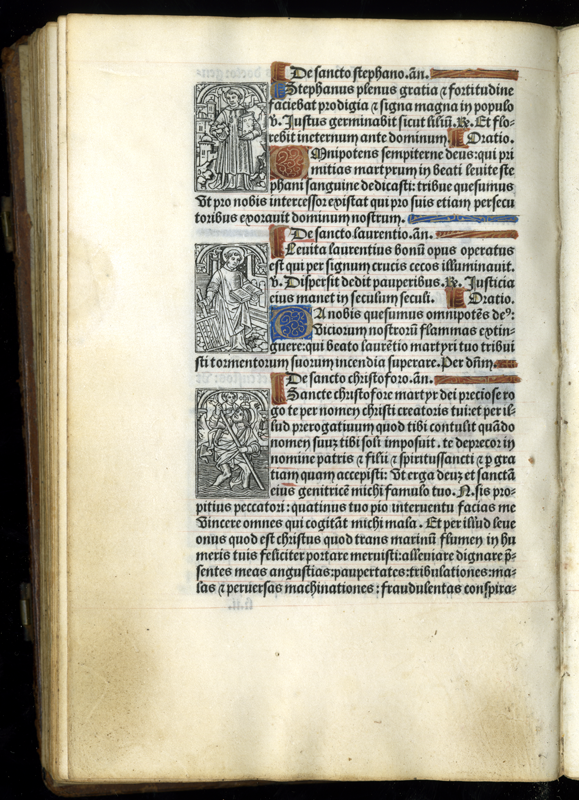 De sancto stephano. añ.
Stephanus plenus gratia ⁊ fortitudine
faciebat prodigia ⁊ signa magna in populo
v. Justus germinabit sicut liliũ. ℞. Et flo-
rebit ineternum ante dominum. Oratio.
OMnipotens sempiterne deus: qui pri
mitias martyrum in beati leuite ste
phani sanguine dedicasti: tribue quesumus
vt pro nobis intercessor existat qui pro suis etiam persecu
toribus exorauit dominum nostrum.
De sancto laurentio. añ.
Leuita laurentius bonũ opus operatus
est qui per signum crucis cecos illuminauit.
v. Dispersit dedit pauperibus. ℞. Justicia
eius manet in seculum seculi. Oratio.
DA nobis quesumus omnipotẽs deꝰ:
viciorum nostrorũ flammas extin-
guere: qui beato laurẽtio martyri tuo tribui
sti tormentorum suorum incendia superare. Per dñm.
De sancto christoforo. añ.
Sancte christofore martyr dei preciose ro
go te per nomen christi creatoris tui: et per il-
lud prerogatiuum quod tibi contulit quãdo
nomen suuz tibi soli imposuit. te deprecor in
nomine patris ⁊ filii ⁊ spiritussancti ⁊ ꝑ gra
tiam quam accepisti: vt erga deuz et sanctã
eius genitricẽ michi famulo tuo. N. sis pro-
pitius peccatori: quatinus tuo pio interuentu facias me
vincere omnes qui cogitãt michi mala. Et per illud leue
onus quod est christus quod trans marinũ flumen in hu
meris tuis feliciter portare meruisti: alleuiare dignare p̃-
sentes meas angustias: paupertates: tribulationes: ma-
las ⁊ peruersas machinationes: fraudulentas conspira-